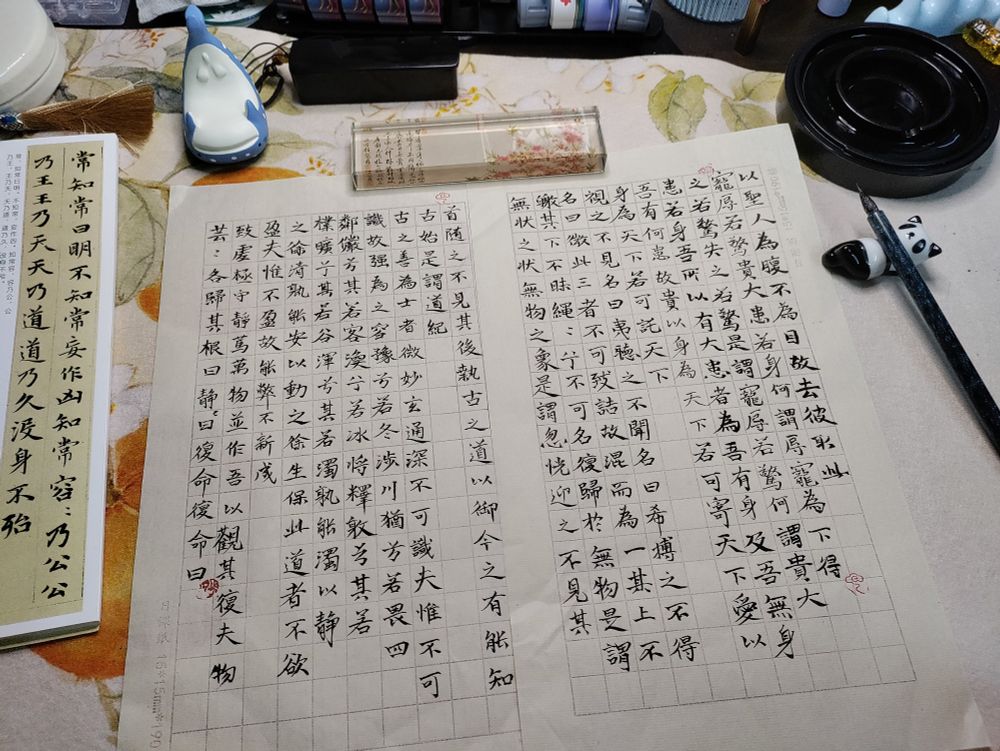 以聖人為腹不為目故去彼取此
寵辱若驚貴大患若身何謂辱寵為下得
之若驚失之若驚是謂寵辱若驚何謂貴大
患若身吾所以有大患者為吾有身及吾無身
吾有何患故貴以身為天下若可寄天下愛以
身為天下若可託天下
視之不見名曰夷聽之不聞名曰希搏之不得
名曰微此三者不可致詰故混而為一其上不
皦其下不昧繩：兮不可名復歸於無物是謂
無狀之狀無物之象是謂忽恍迎之不見其
首随之不見其後執古之道以御今之有能知
古始是謂道紀
古之善為士者微妙玄通深不可識夫惟不可
識故強為之容豫兮若冬涉川猶兮若畏四
鄰儼兮其若客渙兮若冰將釋敦兮其若
樸曠兮其若谷渾兮其若濁孰能濁以靜
之徐清孰能安以動之徐生保此道者不欲
盈夫惟不盈故能弊不新成
致虛極守靜篤萬物並作吾以觀其復夫物
芸：各歸其根曰靜：曰復命復命曰
15*15mm*190
常知常曰明不知常妄作凶知常容：乃公公
乃王王乃天天乃道道乃久沒身不殆
常，知常曰明。不知常，妄作凶。知常容，容乃公，公
乃王，王乃天，天乃道，道乃久，没身不殆。